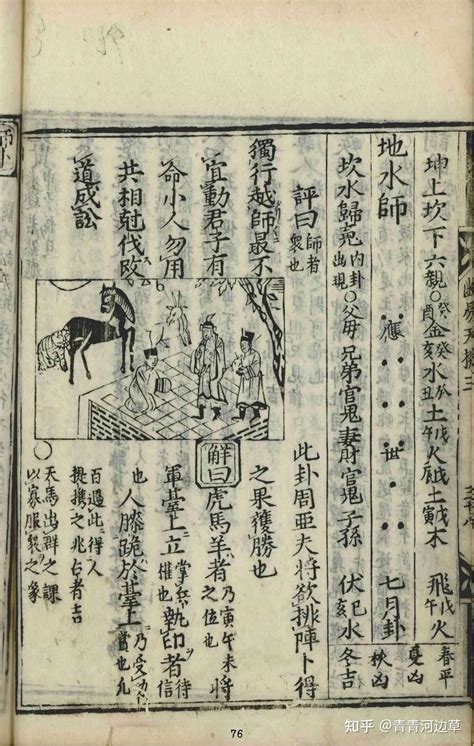 坤上坎下六親 癸酉金 癸亥水 癸丑土 戊午火 戊辰土 戊寅木 飛戊午火 春平
夏凶
地水師 應 世 七月卦 秋凶
坎水歸䰟 内卦出現 ○父母 兄弟 官鬼 妻財 官鬼 子孫 伏己亥水 冬吉
評曰 師者衆也 此卦周亞夫將欲排陣卜得
之果獲勝也
獨行越師最不
宜動君子有
命小人勿用
共相尅伐改
道成訟
解曰 虎馬羊者 乃寅午未之位也 將
軍臺上立 掌兵權也 執印者 信
也 人膝跪於臺上 乃受功賞也 凡
百遇此得人
提携之兆占者吉
○天馬出群之課
以寡服衆之象
76
知乎 @青青河边草